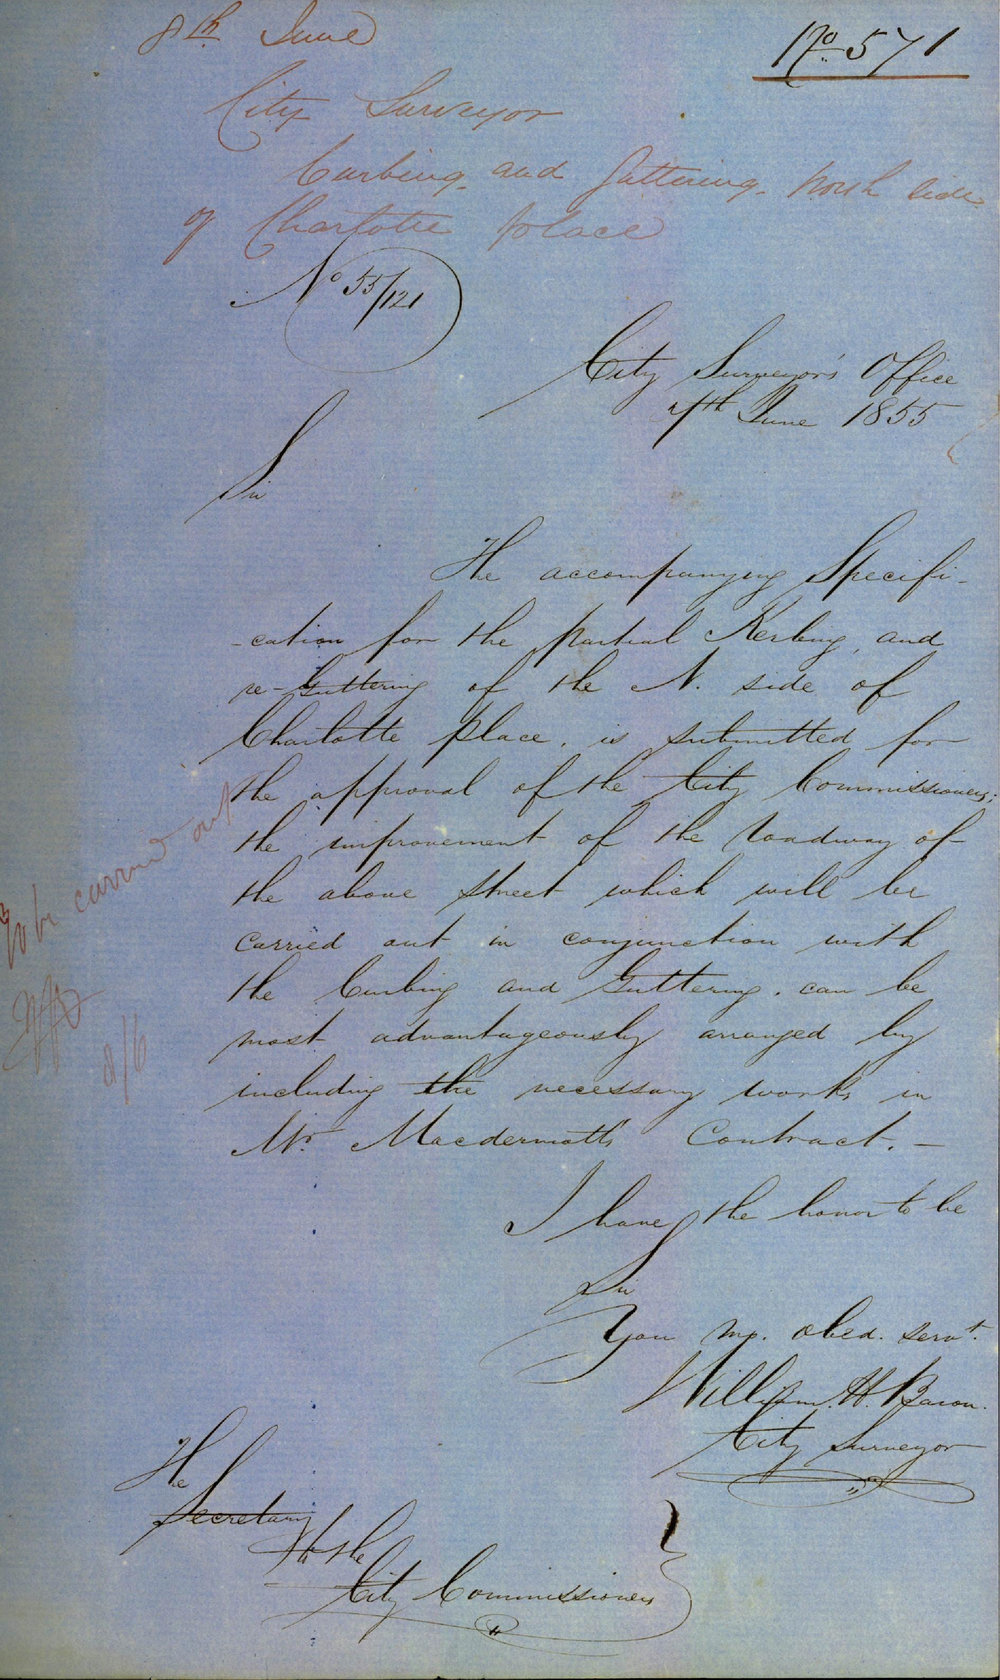 8th June
No 571
City Surveyor
Curbing and Guttering North side
of Charlotte place
No 55/121
City Surveyor's Office
7th June 1855
Sir
The accompanying Specifi-
-cation for the partial Kerbing, and
re-Guttering of the N. side of
Charlotte place, is submitted for
the approval of the City Commissioners;
the improvement of the Roadway of
the above street which will be
carried out in conjunction with
the Curbing and Guttering. can be
most advantageously arranged by
including the necessary works in
Mr. Macdermott's Contract. —
To be carried out
8/6
I have the honor to be
Sir
Your mo. obed. servt.
William. H. Baron.
City Surveyor
The
Secretary
to the
City Commissioners